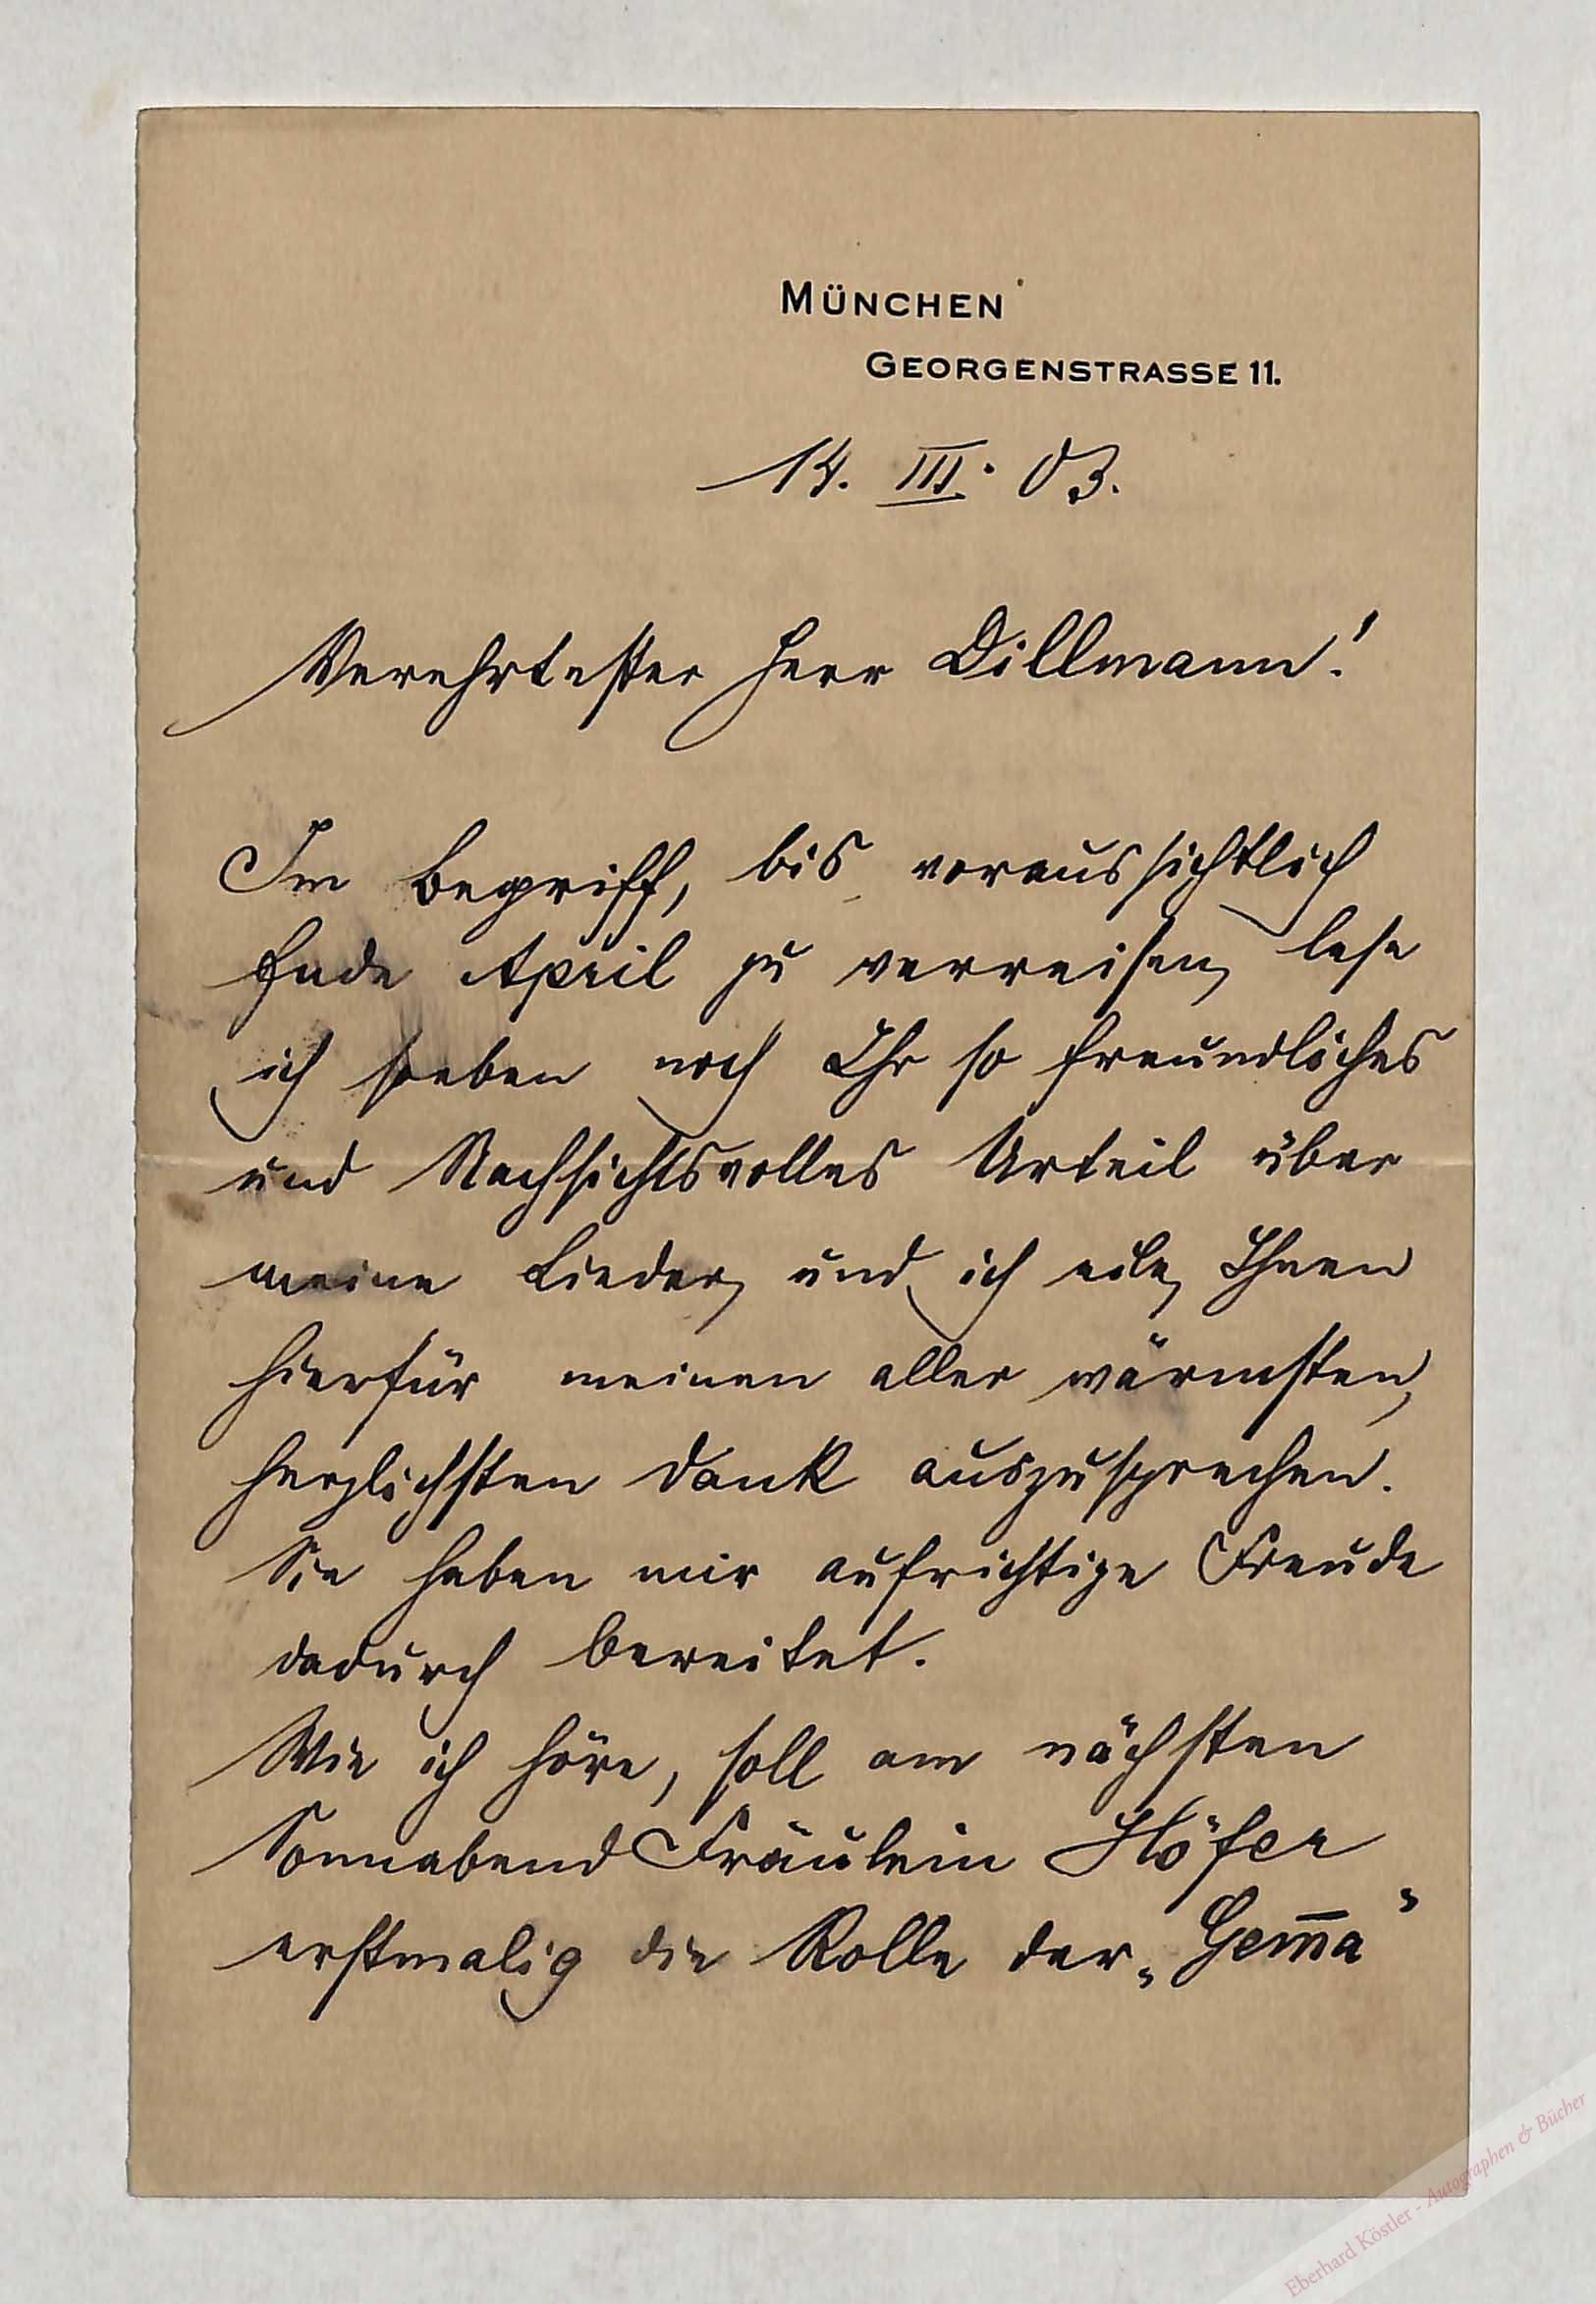 MÜNCHEN
GEORGENSTRASSE 11.
14. III. 03.
Verehrtester Herr Dillmann!
Im Begriff, bis voraussichtlich
Ende April zu verreisen, lese
ich soeben noch Ihr so freundliches
und Nachsichtsvolles Urteil über
meine Lieder, und ich eile, Ihnen
hierfür meinen aller wärmsten,
herzlichsten Dank auszusprechen.
Sie haben mir aufrichtige Freude
dadurch bereitet.
Wie ich höre, soll am nächsten
Sonnabend Fräulein Höfer
erstmalig die Rolle der „Gem̅a"
Eberhard Köstler - Autographen & Bücher